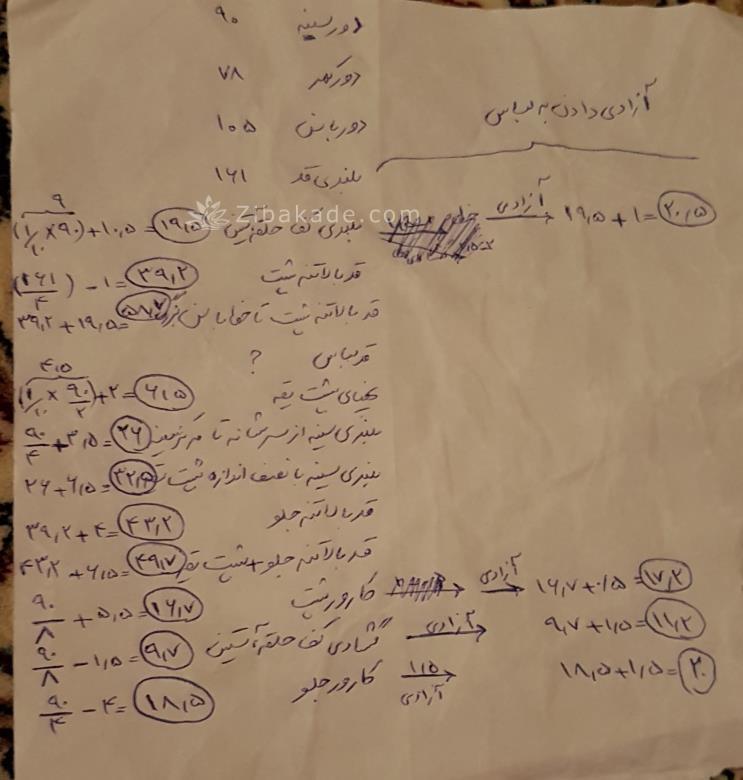 دور سینه ۹۰
دور کمر ۷۸
دور باسن ۱۰۵
بلندی قد ۱۶۱
آزادی دادن به لباس
Zibakade.com
بلندی کف حلقه آستین (۱/۱۰ × ۹۰) + ۱۰,۵ = ۱۹,۵ ۹
آزادی ۱۹,۵ + ۱ = ۲۰,۵
قد بالاتنه پشت (۱۶۱/۴) - ۱ = ۳۹,۲
قد بالاتنه پشت تا خط باسن بزرگ ۳۹,۲ + ۱۹,۵ = ۵۸,۷
قد لباس ؟
پهنای پشت یقه (۱/۱۰ × ۹۰/۲) + ۲ = ۶,۵ ۴,۵
بلندی سینه از سرشانه تا ۹۰/۴ + ۳,۵ = ۲۶
بلندی سینه با نصف اندازه پشت ۲۶ + ۶,۵ = ۳۲,۵
قد بالاتنه جلو ۳۹,۲ + ۴ = ۴۳,۲
قد بالاتنه جلو + پشت یقه ۴۳,۲ + ۶,۵ = ۴۹,۷
کارور پشت ۹۰/۸ + ۵,۵ = ۱۶,۷ آزادی ۱۶,۷ + ۰/۵ = ۱۷,۲
گشادی کف حلقه آستین ۹۰/۸ - ۱,۵ = ۹,۷ آزادی ۹,۷ + ۱,۵ = ۱۱,۲
کارور جلو ۹۰/۴ - ۴ = ۱۸,۵ ۱,۵ آزادی ۱۸,۵ + ۱,۵ = ۲۰